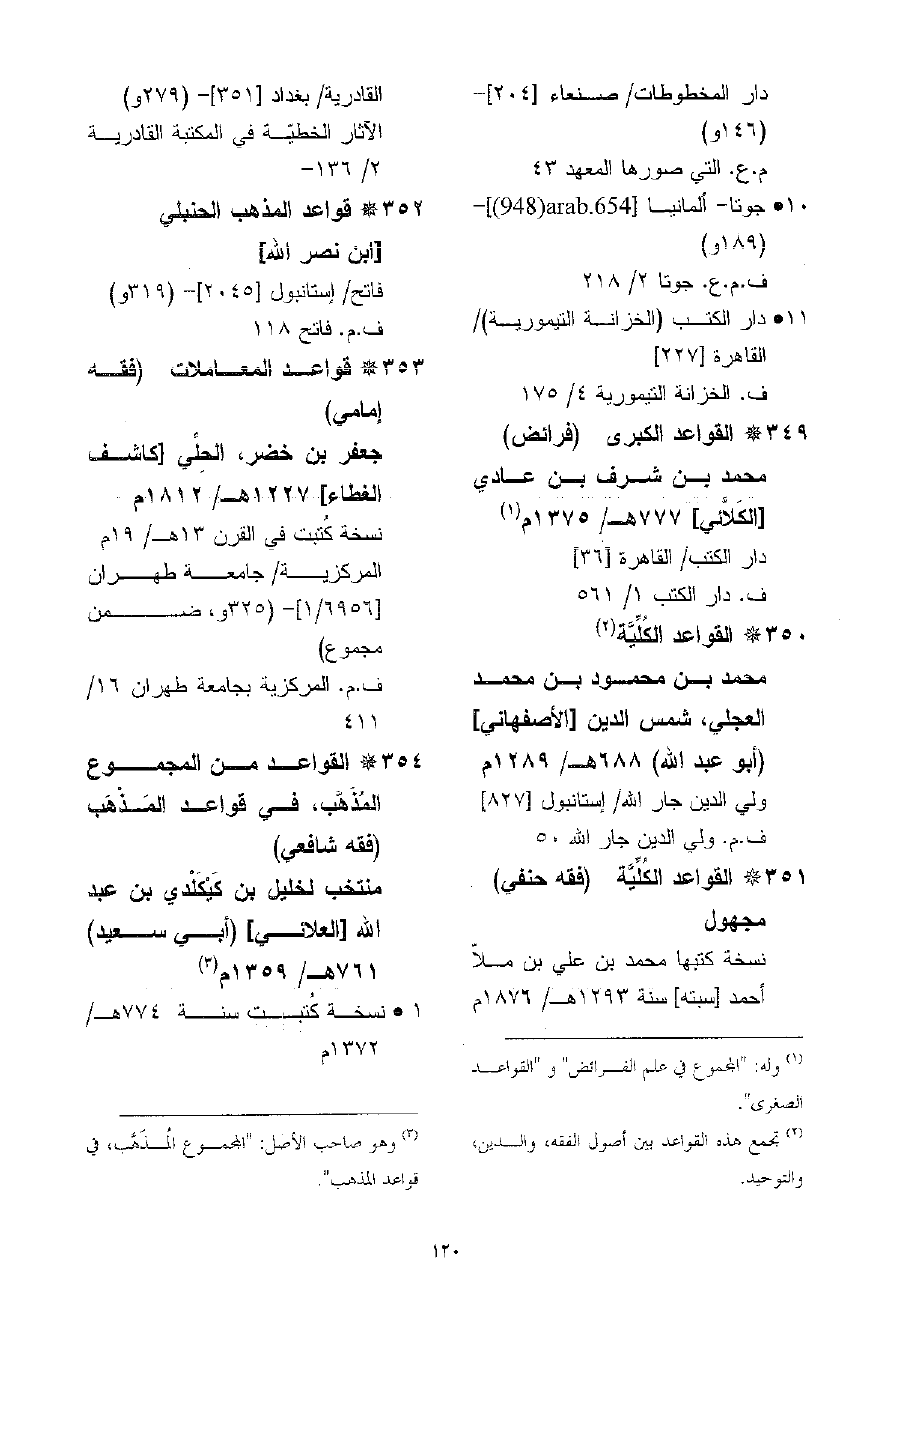 دار المخطوطات/ صنعاء [٢٠٤]-
(١٤٦و)
م.ع. التي صورها المعهد ٤٣
١٠• جوتا- ألمانيا [arab.654(948)]-
(١٨٩و)
ف.م.ع. جوتا ٢/ ٢١٨
١١• دار الكتب (الخزانة التيمورية)/
القاهرة [٢٢٧]
ف. الخزانة التيمورية ٤/ ١٧٥
٣٤٩* القواعد الكبرى (فرائض)
محمد بن شرف بن عادي
[الكَلاَّئي] ٧٧٧هـ/ ١٣٧٥م(١)
دار الكتب/ القاهرة [٣٦]
ف. دار الكتب ١/ ٥٦١
٣٥٠* القواعد الكُلِّيَّة(٢)
محمد بن محمود بن محمد
العجلي، شمس الدين [الأصفهاني]
(أبو عبد الله) ٦٨٨هـ/ ١٢٨٩م
ولي الدين جار الله/ إستانبول [٨٢٧]
ف.م. ولي الدين جار الله ٥٠
٣٥١* القواعد الكُلِّيَّة (فقه حنفي)
مجهول
نسخة كتبها محمد بن علي بن ملاّ
أحمد [سبته] سنة ١٢٩٣هـ/ ١٨٧٦م
(١) وله: "المجموع في علم الفرائض" و "القواعد
الصغرى".
(٢) تجمع هذه القواعد بين أصول الفقه، والدين،
والتوحيد.
القادرية/ بغداد [٣٥١]- (٢٧٩و)
الآثار الخطيّة في المكتبة القادرية
٢/ ١٣٦-
٣٥٢* قواعد المذهب الحنبلي
[ابن نصر الله]
فاتح/ إستانبول [٢٠٤٥]- (٣١٩و)
ف.م. فاتح ١١٨
٣٥٣* قواعد المعاملات (فقه
إمامي)
جعفر بن خضر، الحلّي [كاشف
الغطاء] ١٢٢٧هـ/ ١٨١٢م
نسخة كُتبت في القرن ١٣هـ/ ١٩م
المركزية/ جامعة طهران
[١/٦٩٥٦]- (٣٢٥و، ضمن
مجموع)
ف.م. المركزية بجامعة طهران ١٦/
٤١١
٣٥٤* القواعد من المجموع
المُذَهَّب، في قواعد المَذْهَب
(فقه شافعي)
منتخب لخليل بن كَيْكَلْدي بن عبد
الله [العلائي] (أبي سعيد)
٧٦١هـ/ ١٣٥٩م(٣)
١ • نسخة كُتبت سنة ٧٧٤هـ/
١٣٧٢م
(٣) وهو صاحب الأصل: "المجموع المُذَهَّب، في
قواعد المذهب".
١٢٠